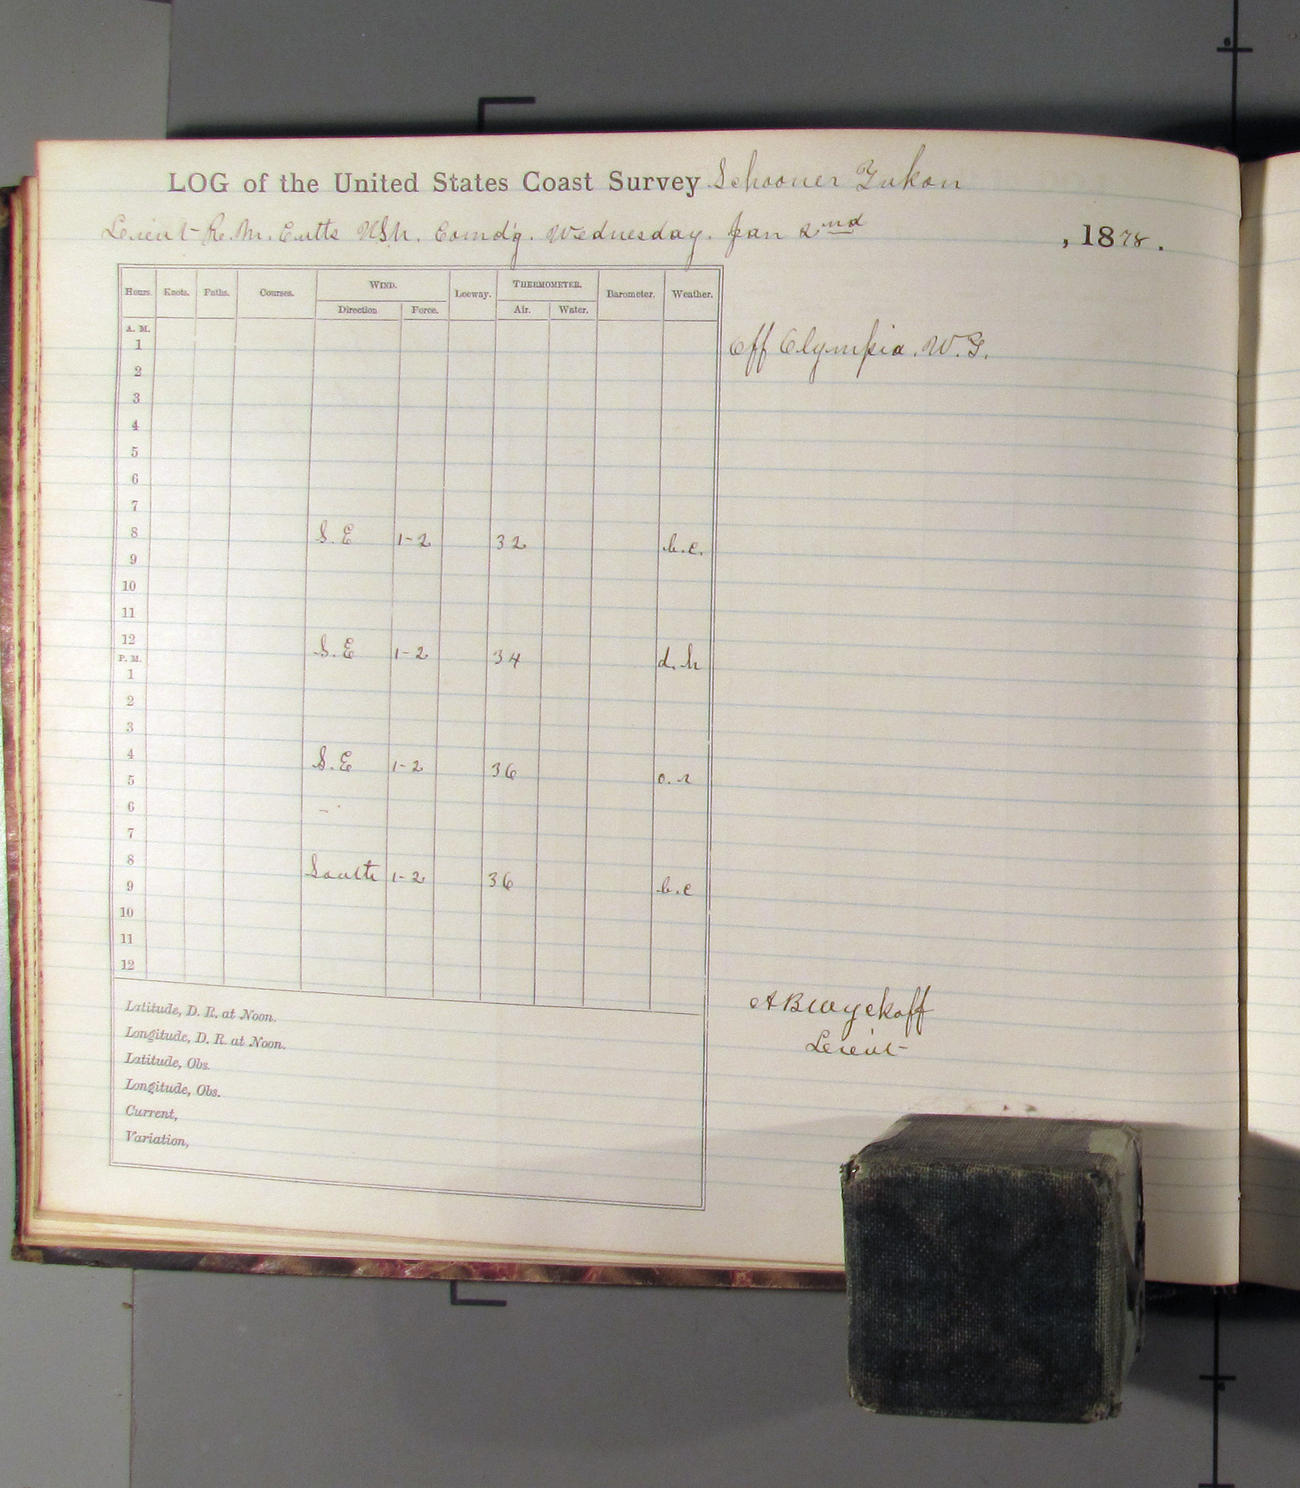 LOG of the United States Coast Survey Schooner Yukon
Lieut R. M. Cutts USN. Comd'g. Wednesday. Jan 2nd , 1878.
Hours. Knots. Faths. Courses. WIND. Leeway. THERMOMETER. Barometer. Weather.
Direction Force. Air. Water.
A. M.
1 Off Olympia. W.T.
2
3
4
5
6
7
8 S.E 1-2 32 b.c.
9
10
11
12 S.E 1-2 34 d.h
P. M.
1
2
3
4 S.E 1-2 36 o.r
5
6
7
8 South 1-2 36 b.c
9
10
11
12
Latitude, D. R. at Noon. A B Wyckoff
Longitude, D. R. at Noon. Lieut
Latitude, Obs.
Longitude, Obs.
Current,
Variation,